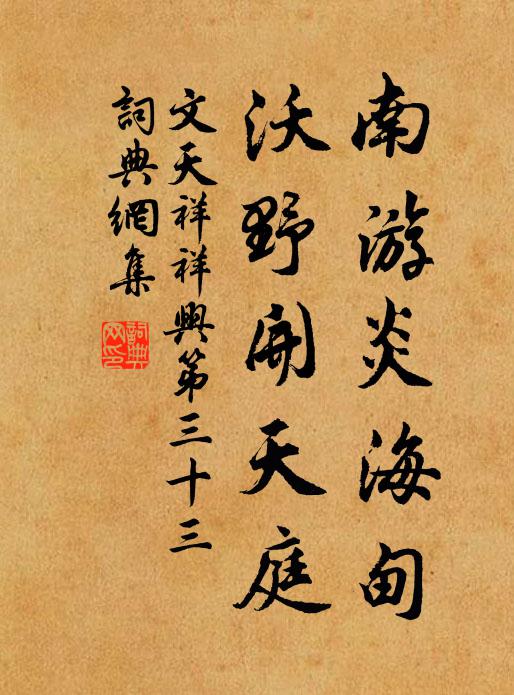 南游炎海甸
沃野開天庭
文天祥祥興第三十三
詞典網集
詞典網印